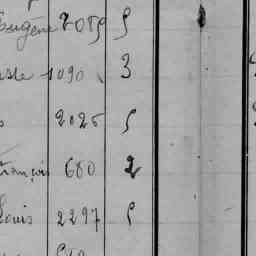 Eugène 2089 5
1090 3
2026 5
François 680 2
Louis 2297 5